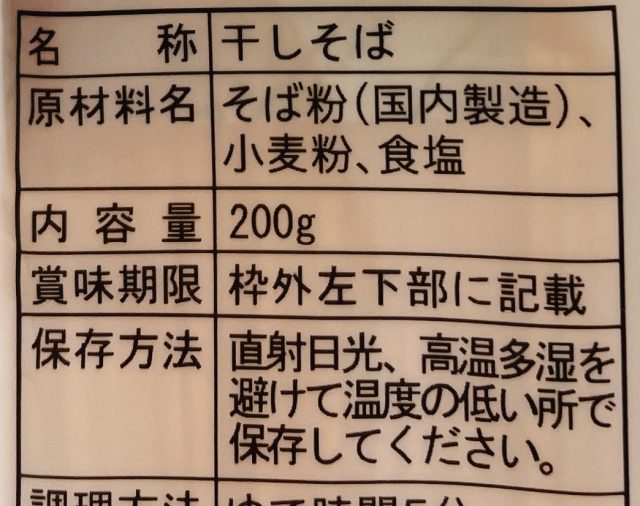 名称 干しそば
原材料名 そば粉(国内製造)、
小麦粉、食塩
内容量 200g
賞味期限 枠外左下部に記載
保存方法 直射日光、高温多湿を
避けて温度の低い所で
保存してください。
調理方法 ゆで時間5分